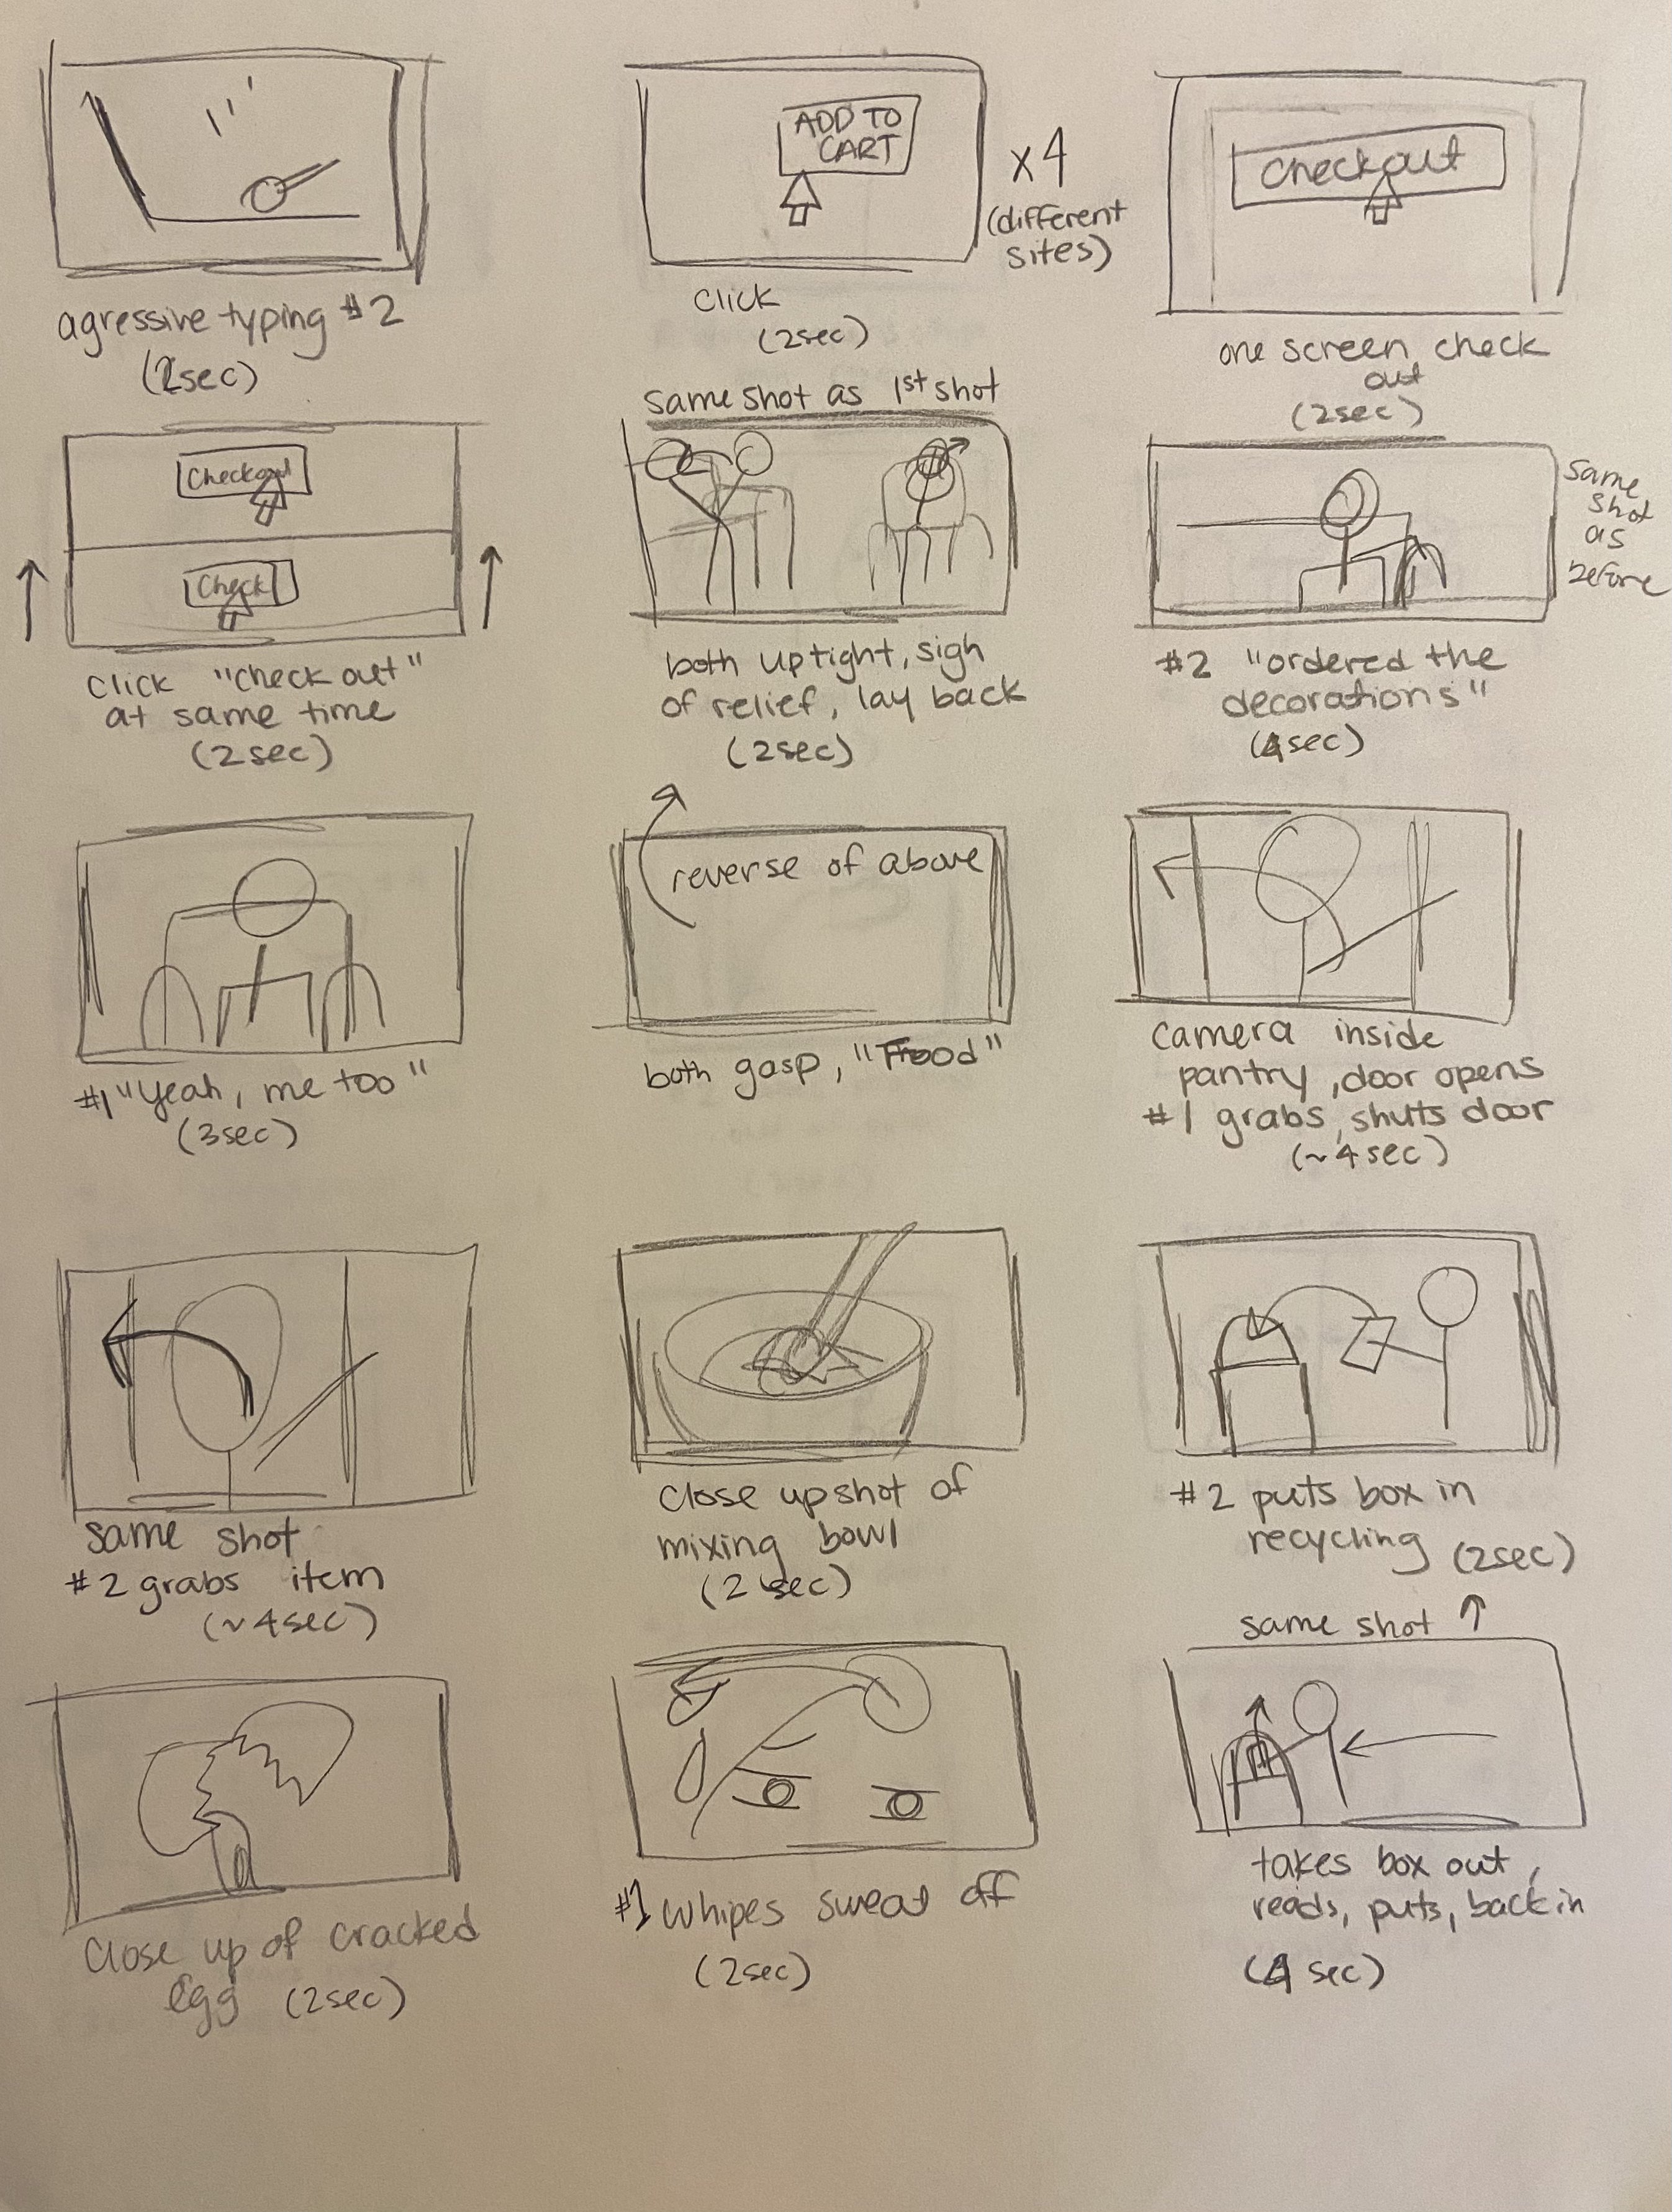 agressive typing #2
(2sec)
ADD TO
CART
x4
(different
sites)
click
(2sec)
checkout
one screen check
out
(2sec)
Checkout
Check
click "check out"
at same time
(2sec)
same shot as 1st shot
both uptight, sigh
of relief, lay back
(2sec)
same
shot
as
before
#2 "ordered the
decorations"
(4sec)
#1 "Yeah, me too"
(3sec)
reverse of above
both gasp, "Food"
camera inside
pantry, door opens
#1 grabs, shuts door
(~4sec)
same shot
#2 grabs item
(~4sec)
Close up shot of
mixing bowl
(2 sec)
#2 puts box in
recycling (2sec)
Close up of cracked
egg (2sec)
#1 whipes sweat off
(2sec)
same shot ↑
takes box out,
reads, puts, back in
(4 sec)